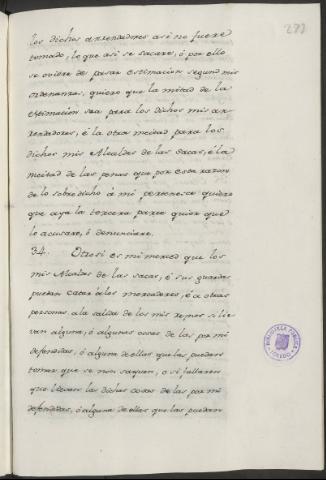 277
los dichos arrendadores asi no fuere
tomado, lo que asi se sacare, ó por ello
se oviere de pasar estimacion segund mis
ordenanzas, quiero que la mitad de la
estimacion sea para los dichos mis ar-
rendadores, é la otra meitad para los
dichos mis Alcaldes de las sacas, é la
meitad de las penas que por esta razon
de lo sobre dicho á mi pertenesce quiero
que aya la tercera parte quier que
lo acusare, ó denunciare.
34. Otrosi es mi merced que los
mis Alcaldes de las sacas, ó sus guardas
puedan catar á los mercadores, é á otras
personas á la salida de los mis regnos si lie-
van alguna, ó algunas cosas de las por mi
defendidas, ó alguna de ellas que las puedan
tomar que se non saquen, o si fallaren
que llevan las dichas cosas de las por mi
defendidas, ó alguna de ellas que las puedan
BIBLIOTECA PUBLICA
TOLEDO